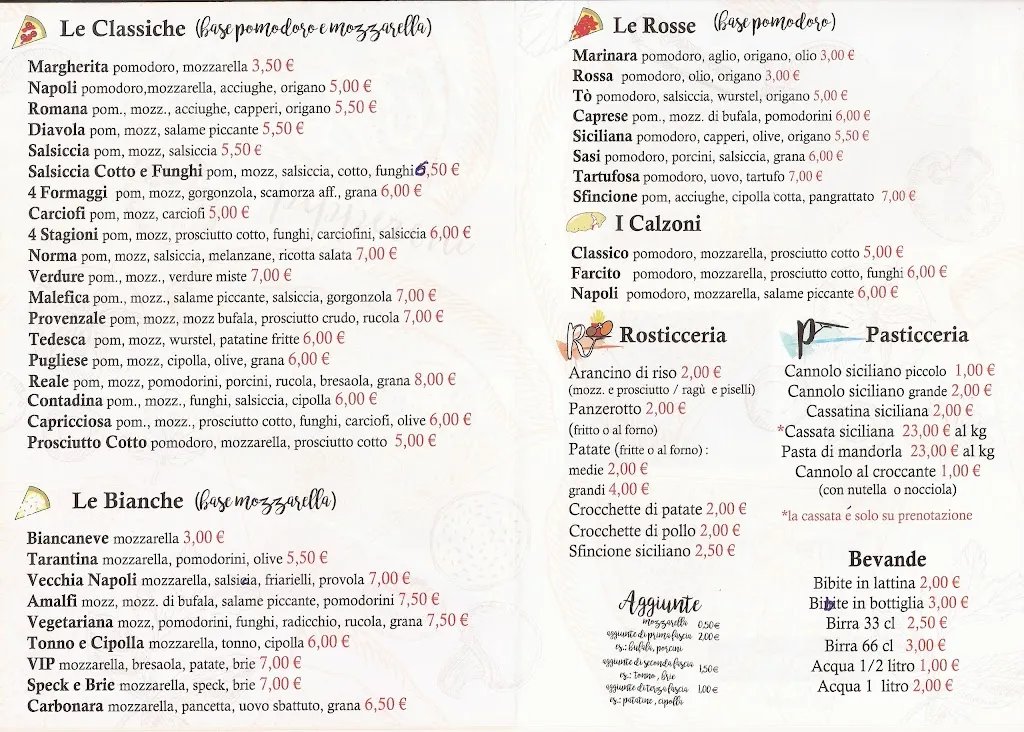 Le Classiche (base pomodoro e mozzarella)
Margherita pomodoro, mozzarella 3,50 €
Napoli pomodoro,mozzarella, acciughe, origano 5,00 €
Romana pom., mozz., acciughe, capperi, origano 5,50 €
Diavola pom, mozz, salame piccante 5,50 €
Salsiccia pom, mozz, salsiccia 5,50 €
Salsiccia Cotto e Funghi pom, mozz, salsiccia, cotto, funghi 6,50 €
4 Formaggi pom, mozz, gorgonzola, scamorza aff., grana 6,00 €
Carciofi pom, mozz, carciofi 5,00 €
4 Stagioni pom, mozz, prosciutto cotto, funghi, carciofini, salsiccia 6,00 €
Norma pom, mozz, salsiccia, melanzane, ricotta salata 7,00 €
Verdure pom., mozz., verdure miste 7,00 €
Malefica pom., mozz., salame piccante, salsiccia, gorgonzola 7,00 €
Provenzale pom, mozz, mozz bufala, prosciutto crudo, rucola 7,00 €
Tedesca pom, mozz, wurstel, patatine fritte 6,00 €
Pugliese pom, mozz, cipolla, olive, grana 6,00 €
Reale pom, mozz, pomodorini, porcini, rucola, bresaola, grana 8,00 €
Contadina pom., mozz., funghi, salsiccia, cipolla 6,00 €
Capricciosa pom., mozz., prosciutto cotto, funghi, carciofi, olive 6,00 €
Prosciutto Cotto pomodoro, mozzarella, prosciutto cotto 5,00 €
Le Bianche (base mozzarella)
Biancaneve mozzarella 3,00 €
Tarantina mozzarella, pomodorini, olive 5,50 €
Vecchia Napoli mozzarella, salsicia, friarielli, provola 7,00 €
Amalfi mozz, mozz. di bufala, salame piccante, pomodorini 7,50 €
Vegetariana mozz, pomodorini, funghi, radicchio, rucola, grana 7,50 €
Tonno e Cipolla mozzarella, tonno, cipolla 6,00 €
VIP mozzarella, bresaola, patate, brie 7,00 €
Speck e Brie mozzarella, speck, brie 7,00 €
Carbonara mozzarella, pancetta, uovo sbattuto, grana 6,50 €
Le Rosse (base pomodoro)
Marinara pomodoro, aglio, origano, olio 3,00 €
Rossa pomodoro, olio, origano 3,00 €
Tò pomodoro, salsiccia, wurstel, origano 5,00 €
Caprese pom., mozz. di bufala, pomodorini 6,00 €
Siciliana pomodoro, capperi, olive, origano 5,50 €
Sasi pomodoro, porcini, salsiccia, grana 6,00 €
Tartufosa pomodoro, uovo, tartufo 7,00 €
Sfincione pom, acciughe, cipolla cotta, pangrattato 7,00 €
I Calzoni
Classico pomodoro, mozzarella, prosciutto cotto 5,00 €
Farcito pomodoro, mozzarella, prosciutto cotto, funghi 6,00 €
Napoli pomodoro, mozzarella, salame piccante 6,00 €
Rosticceria
Arancino di riso 2,00 €
(mozz. e prosciutto / ragù e piselli)
Panzerotto 2,00 €
(fritto o al forno)
Patate (fritte o al forno) :
medie 2,00 €
grandi 4,00 €
Crocchette di patate 2,00 €
Crocchette di pollo 2,00 €
Sfincione siciliano 2,50 €
Aggiunte
mozzarella 0,50 €
aggiunte di prima fascia 2,00 €
es.: bufala, porcini
aggiunte di seconda fascia 1,50 €
es.: tonno, brie
aggiunte di terza fascia 1,00 €
es.: patatine, cipolla
Pasticceria
Cannolo siciliano piccolo 1,00 €
Cannolo siciliano grande 2,00 €
Cassatina siciliana 2,00 €
*Cassata siciliana 23,00 € al kg
Pasta di mandorla 23,00 € al kg
Cannolo al croccante 1,00 €
(con nutella o nocciola)
*la cassata é solo su prenotazione
Bevande
Bibite in lattina 2,00 €
Bibite in bottiglia 3,00 €
Birra 33 cl 2,50 €
Birra 66 cl 3,00 €
Acqua 1/2 litro 1,00 €
Acqua 1 litro 2,00 €